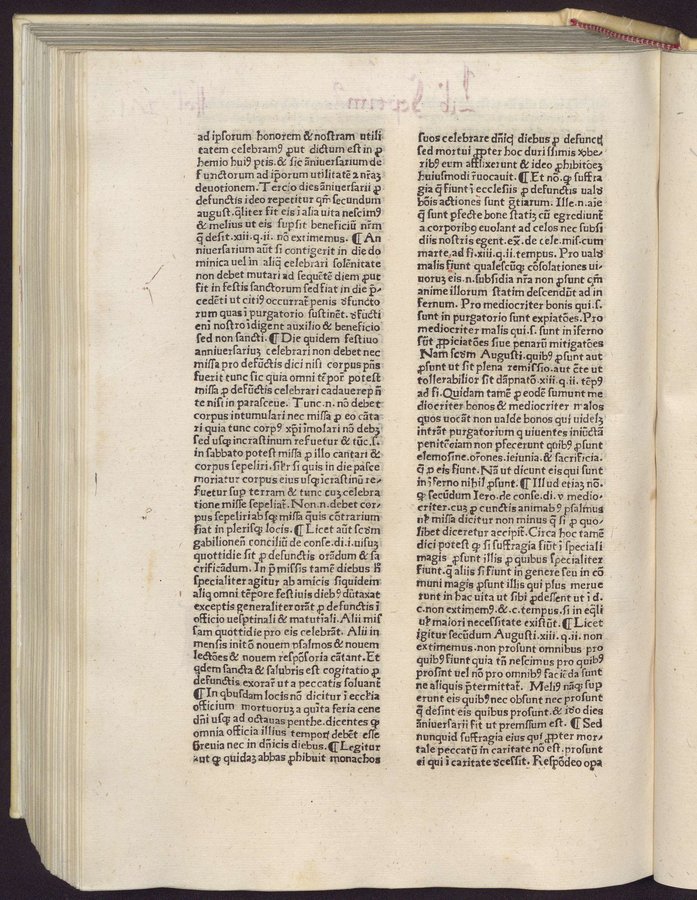 ad ipsorum honorem & nostram utili
tatem celebramꝰ ꝓut dictum est in ꝓ
hemio huiꝰ ptis. & sic āniuersarium de
functorum ad ip̄orum utilitatē a nr̄aꝫ
deuotionem. Tercio dies āniuersarii ꝓ
defunctis ideo reperitur qm̄ secundum
august. q̄liter fit eis ī alia uita nescimꝰ
& melius ut eis supsit beneficiū nr̄m
q̄ desit. xiii. q. ii. nō extimemus. ¶ An
niuersarium aūt si contigerit in die do
minica uel in aliq̄ celebrari solēnitate
non debet mutari ad sequētē diem ꝓut
fit in festis sanctorum sed fiat in die p̄
cedēti ut citiꝰ occurrat̄ penis defuncto
rum quas ī purgatorio sustinēt. defūcti
eni nostro īdigent auxilio & beneficio
sed non sancti. ¶ Die quidem festiuo
anniuersariuꝫ celebrari non debet nec
missa pro defūctis dici nisi corpus pn̄s
fuerit tunc sic quia omni tēꝑor̄ potest
missa ꝓ defūctis celebrari cadauerep n̄
te nisi in parasceue. Tunc. n. nō debet
corpus intumulari nec missa ꝑ eo cāta
ri quia tunc corpꝰ xp̄i īmolari nō debꝫ
sed usqꝫ incrastinum refuetur & tūc. s.
in sabbato potest missa ꝓ illo cantari &
corpus sepeliri. silr̄ si quis in die pasce
moriatur corpus eius usqꝫ īcrastinū re-
fuetur suꝑ terram & tunc cuꝫ celebra
tione misse sepeliat̄. Non. n. debet cor-
pus sepeliri absqꝫ missa q̄uis cōtrarium
fiat in plerisqꝫ locis. ¶ Licet aūt scd̄m
gabilionen̄ conciliū de conse. di. i. uisuꝫ
quottidie sit ꝓ defunctis orādum & sa
crificādum. In p̄missis tamē diebus hr̄
specialiter agitur ab amicis siquidem
aliq omni tēꝑore festiuis diebꝰ dūtaxat
exceptis generaliter orāt̄ ꝓ defunctis ī
officio uesꝑtinali & matutīali. Alii mis
sam quottidie pro eis celebrāt. Alii in
mensis initō nouem ꝓsalmos & nouem
lectōes & nouem respōsoria cātant. Et
q̄dem sancta & salubris est cogitatio ꝓ
defunctis exorar̄ ut a peccatis soluant̄
¶ In qbusdam locis nō dicitur ī ecc̄lia
officium mortuoruꝫ a quīta feria cene
dn̄i usqꝫ ad octauas penthe. dicentes ꝙ
omnia officia illius tempor̄ debēt esse
breuia nec in dn̄icis diebus. ¶ Legitur
aut ꝙ quidaꝫ abbas ꝓhibuit monachos
suos celebrare dn̄icꝭ diebus ꝓ defunctꝭ
sed mortui ꝓpter hoc durissimis v̄be
ribꝰ eum afflixerunt & ideo ꝓhibitōeꝫ
huiusmodi r̄uocauit. ¶ Et nō. ꝙ suffra
gia q̄ fiunt ī ecclesiis ꝓ defunctis ualde
bōis actiones sunt gr̄tiarum. Ille. n. aīe
q̄ sunt ꝑfecte bone statiꝫ cū egrediunt̄
a corporibꝰ euolant ad celos nec subsi
diis nostris egent. ex̄. de cele. mis. cum
marte. ad fi. xiii. q. ii. tempus. Pro ualde
malis fiunt qualescūqꝫ cōsolationes ui-
uoruꝫ eis. n. subsidia nr̄a non ꝓsunt cm̄
anime illorum statim descendūt ad in
fernum. Pro mediocriter bonis qui. s.
sunt in purgatorio sunt expiatōes. Pro
mediocriter malis qui. s. sunt in īferno
sūt ꝓpiciatōes siue penarū mitigatōes
Nam scd̄m Augusti. quibꝰ ꝓsunt aut
ꝓsunt ut sit plena remissio. aut c̄te ut
tollerabilior sit dāpnatō. xiii. q. ii. tēpꝰ
ad fi. Quidam tamē ꝑ eodē sumunt me
diocriter bonos & mediocriter malos
quos uocāt non ualde bonos qui uideꝫ
intrāt purgatorium q̄ uiuentes iniūctā
penitēciam non ꝑfecerunt quibꝰ ꝓsunt
elemosine. or̄ones. ieiunia. & sacrificia.
q̄ ꝓ eis fiunt. Nā ut dicunt eis qui sunt
in īferno nihil ꝓsunt. ¶ Illud etiaꝫ nō.
ꝙ secūdum Iero. de conse. di. v. medio-
criter. cuꝫ ꝓ cunctis animabꝰ psalmus
ul̄ missa dicitur non minus q̄ si ꝓ quo-
libet diceretur accipit̄. Circa hoc tamē
dici potest ꝙ si suffragia siūt ī speciali
magis ꝓsunt illis ꝓ quibus specialiter
fiunt. q̄ aliis si fiunt in genere seu in cō
muni magis ꝓsunt illis qui plus merue
runt in hac uita ut sibi ꝓdessent ut ī d.
c. non extimemꝰ. & c. tempus. si in eq̄li
ul̄ maiori necessitate existūt. ¶ Licet
igitur secūdum Augusti. xiii. q. ii. non
extimemus. non prosunt omnibus pro
quibꝰ fiunt quia tn̄ nescimus pro quibꝰ
prosint uel nō pro omnibꝰ faciēda sunt
ne aliquis p̄termittat̄. Meliꝰ nāqꝫ suꝑ
erunt eis quibꝰ nec obsunt nec prosunt
q̄ desint eis quibus prosunt. & ideo dies
āniuersarii fit ut premissum est. ¶ Sed
nunquid suffragia eius qui ꝓpter mor-
tale peccatū in caritate nō est. prosunt
ei qui ī caritate decessit. Respōdeo opa